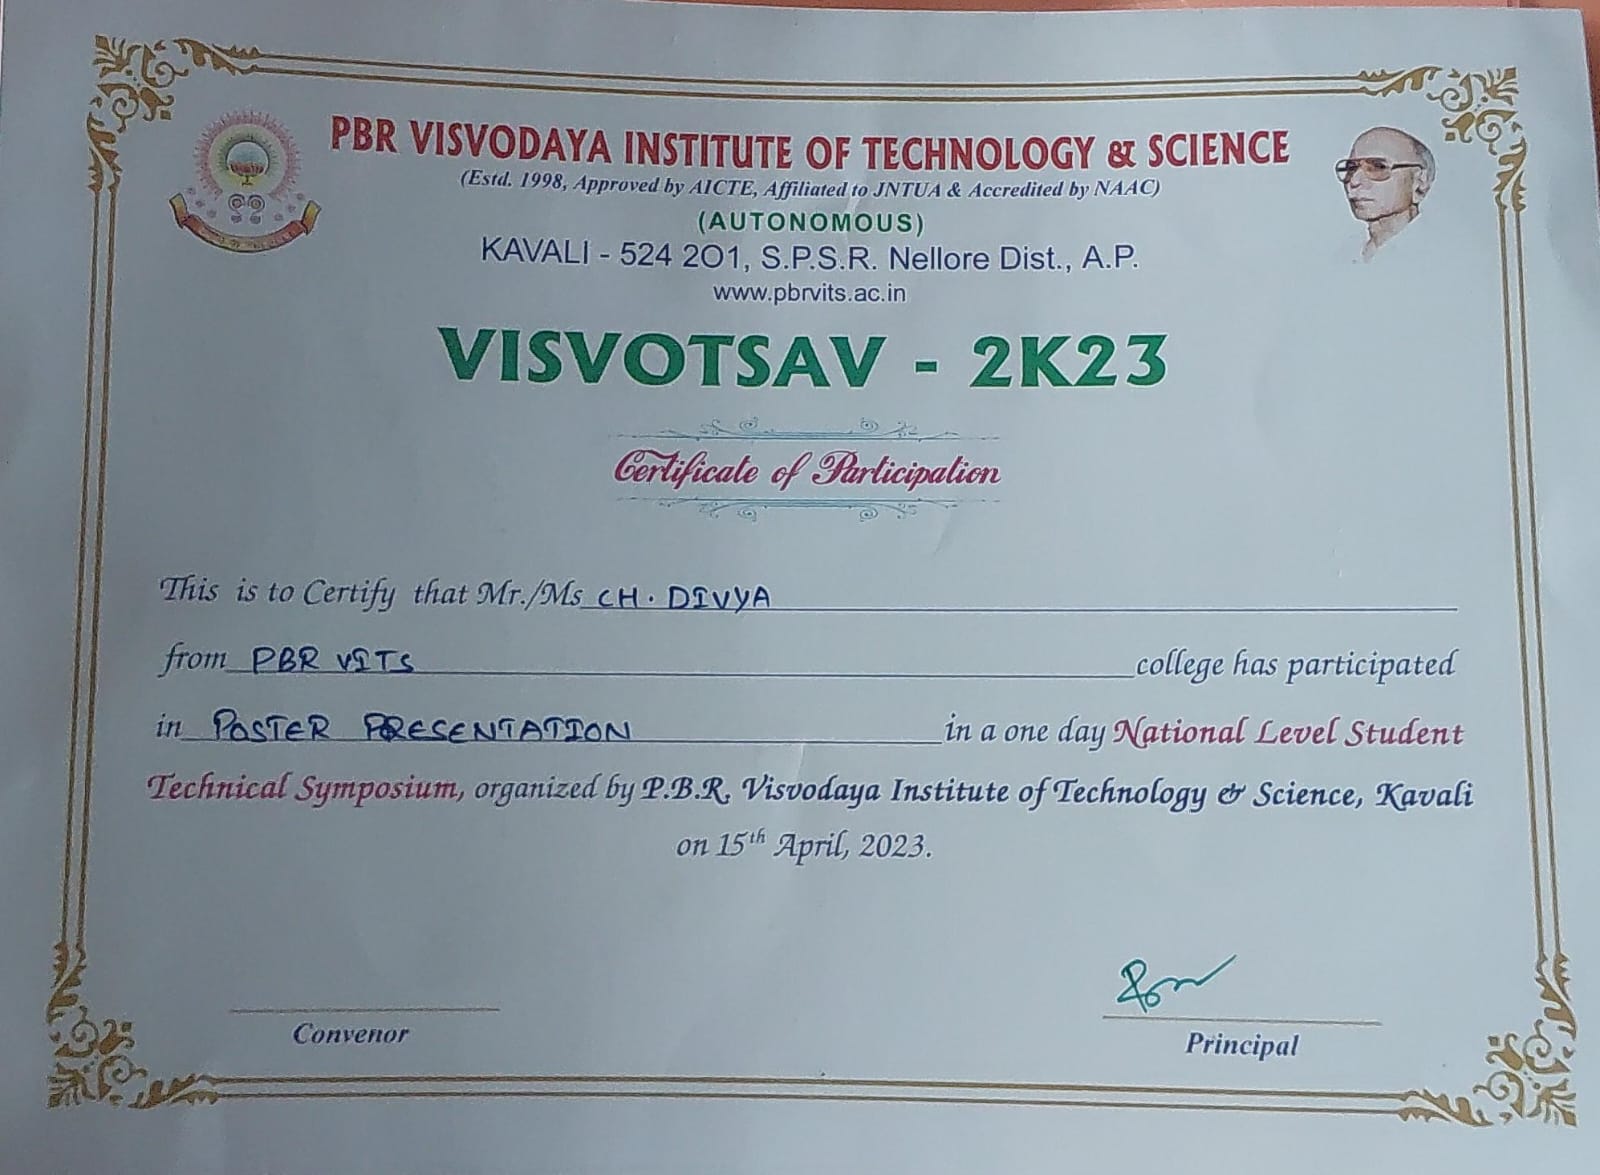 PBR VISVODAYA INSTITUTE OF TECHNOLOGY & SCIENCE
(Estd. 1998, Approved by AICTE, Affiliated to JNTUA & Accredited by NAAC)
(AUTONOMOUS)
KAVALI - 524 201, S.P.S.R. Nellore Dist., A.P.
www.pbrvits.ac.in
VISVOTSAV - 2K23
Certificate of Participation
This is to Certify that Mr./Ms CH. DIVYA
from PBR VITS college has participated
in POSTER PRESENTATION in a one day National Level Student
Technical Symposium, organized by P.B.R. Visvodaya Institute of Technology & Science, Kavali
on 15th April, 2023.
Convenor
Principal